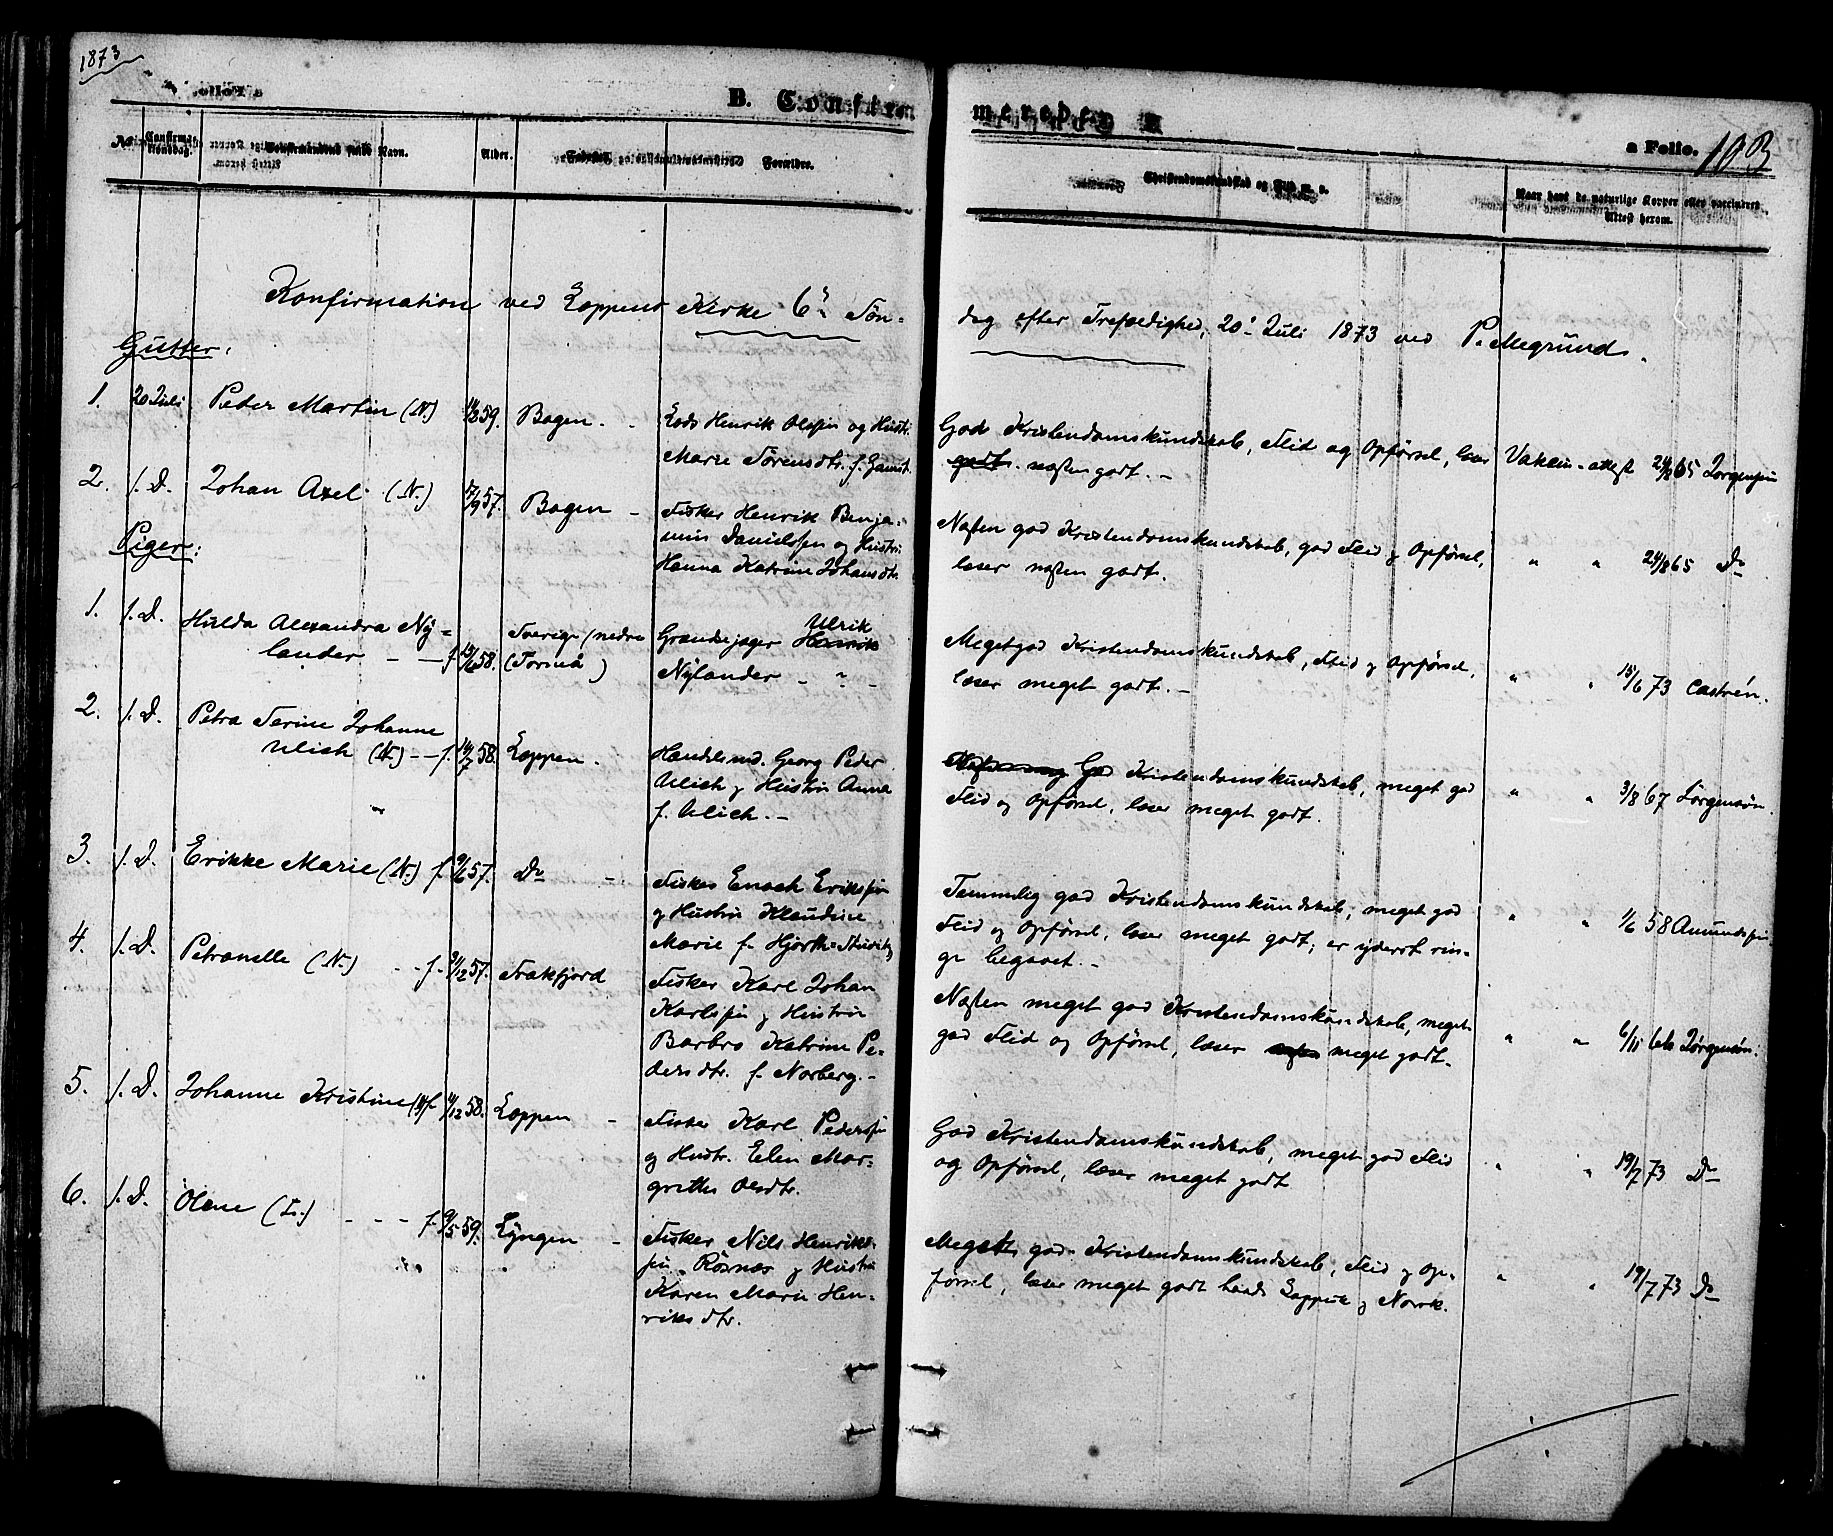 1873
B. Confirmerede
a Folio. 103
No
Confirmationsdag.
Confirmandens fulde Navn.
Alder.
Forældre.
Christendomskundskab og Flid m. v.
Naar havt de naturlige Kopper eller vaccineret
Attest herom.
Konfirmation ved Loppens Kirke 6te Søn-
dag efter Trefoldighed, 20de Juli 1873 ved P. Megrund.
Gutter:
1. 20 Juli Peder Martin (N.) 59. Bogen.
Lods Henrik Olssen og Hustr.
Marie Sørensdtr.
God Kristendomskundskab, Flid og Opførsel, læser
godt. næsten godt. -
Vakcin-attest 24/8 65 Jørgensen
2. s. D. Johan Axel (N.) 17/9 57. Bogen -
Fisker Henrik Benja-
min Danielssen og Hustru
Hanna Katrine Johansdtr.
Næsten god Kristendomskundskab, god Flid og Opførsel,
læser næsten godt.
" " 24/8 65 Do
Piger:
1. s. D. Hulda Alexandra Ny-
lander - - f. 58. Sverige (nedre
(Torneå)
Grændsejæger Henrik Ulrik
Nylander - ? -
Meget god Kristendomskundskab, Flid og Opførsel,
læser meget godt. -
" " 15/6 73 Castrén.
2. s. D. Petra Serine Johanne
Ulich (N.) - - f. 58. Loppen.
Handelsmd. Georg Peder
Ulich og Hustru Anna
f. Ulich. -
God Kristendomskundskab, meget god
Flid og Opførsel, læser meget godt.
" " 3/8 67 Jørgensen
3. s. D. Erikke Marie (N.) f. 9/6 57. Do -
Fisker Enoch Erikssen
og Hustru Klaudine
Marie f. Hjorth
Temmelig god Kristendomskundskab, meget god
Flid og Opførsel, læser meget godt; er yderst rin-
ge begavet. -
" " 1/6 58 Amundssen
4. s. D. Petronelle (N.) - - f. 57. Frakfjord
Fisker Karl Johan
Karlssen og Hustru
Barbro Katrine Pe-
dersdtr. f. Norberg. -
Næsten meget god Kristendomskundskab, meget
god Flid og Opførsel, læser meget godt.
" " 6/11 Jørgensen.
5. s. D. Johanne Kristine (N) f. 11/12 58. Loppen -
Fisker Karl Pederssen
og Hustr. Elen Mar-
grethe Olsdtr.
God Kristendomskundskab, meget god Flid
og Opførsel, læser meget godt
" " 19/7 73 Do
6. s. D. Olene (L.) - - - f. 9/5 59. Lyngen -
Fisker Nils Henriks-
sen Rosnæs og Hustru
Karen Marie Hen-
riksdtr.
Meget god Kristendomskundskab, Flid og Op-
førsel, læser meget godt baade Lappisk og Norsk.
" " 19/7 73 Do